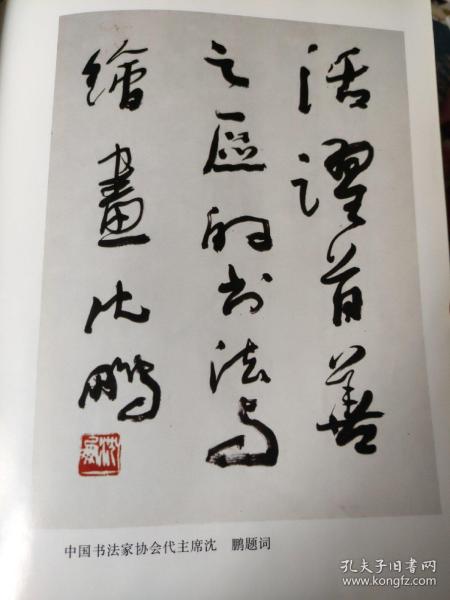 活躍首善
之區的书法与
繪畫 沈鹏
中国书法家协会代主席沈 鹏题词
孔夫子旧书网
www.kongfz.com